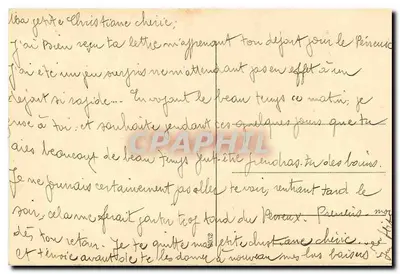 Ma petite Christiane chérie,
J'ai bien reçu ta lettre m'apprenant ton départ pour le Perreux
j'ai été un peu surpris ne m'attendant pas en effet à un
départ si rapide... En voyant le beau temps ce matin, je
pense à toi, et souhaite pendant ces quelques jours que tu
aies beaucoup de beau temps peut-être prendras-tu des bains.
Je ne pourrais certainement pas aller te voir, rentrant tard le
soir, cela me ferait partir trop tard du Perreux. Préviens-moi
dès ton retour. Je te quitte ma petite Christiane chérie
et t'envoie avant de te les donner à nouveau mes bons baisers
CPAPHIL